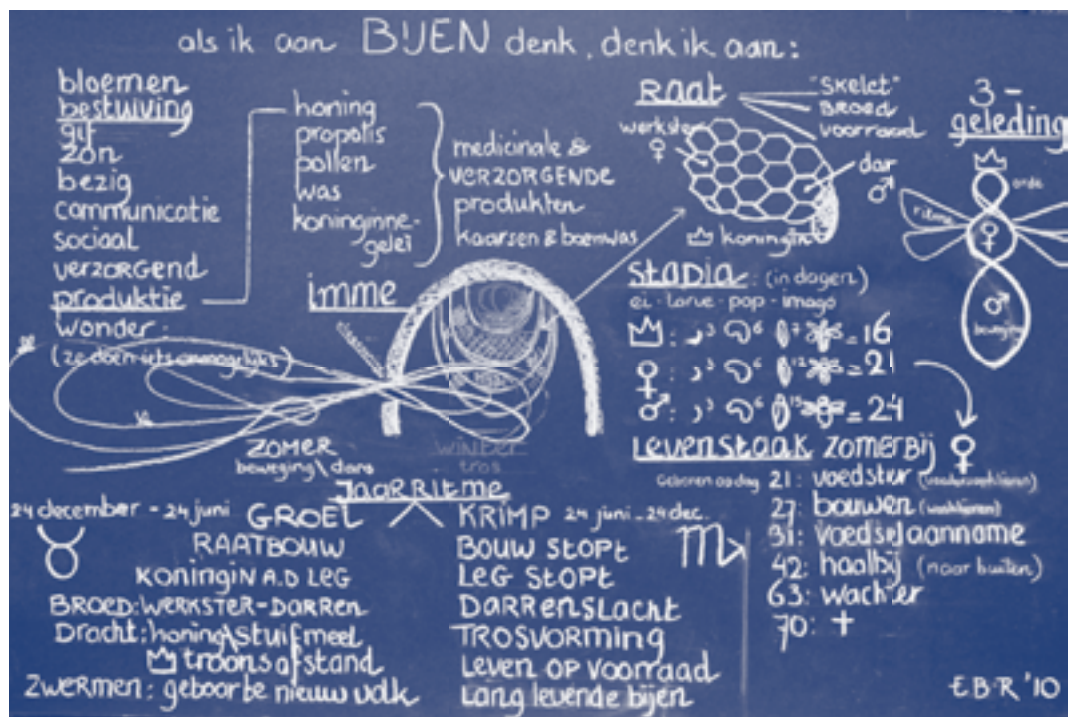 als ik aan BIJEN denk, denk ik aan:
bloemen
bestuiving
gif
zon
bezig
communicatie
sociaal
verzorgend
produktie
wonder.
(ze doen iets onmogelijks)
honing
propolis
pollen
was
koninginne-
gelei
medicinale &
verzorgende
produkten
kaarsen & boenwas
imme
Raat
"Skelet"
Broed
voorraad
werkster
♀
dar
♂
koningin
3-
geleding
orde
ritme
♀
♂
beweging
Stadia: (in dagen)
ei - larve - pop - imago
: 3 6 7 = 16
♀ : 3 6 12 = 21
♂ : 3 6 15 = 24
Levenstaak zomerbij ♀
Geboren op dag 21: voedster
27: bouwen
31: voedselaanname
42: haalbij (naar buiten)
63: wachter
70: +
zomer
beweging\dans
winter
tros
Jaarritme
24 december - 24 juni GROEI
♉
RAATBOUW
koningin A.D LEG
BROED: WERKSTER-DARREN
Dracht: honing\stuifmeel
troonsafstand
Zwermen: geboorte nieuw volk
KRIMP 24 juni - 24 dec.
♏
Bouw stopt
LEG STOPT
DARRENSLACHT
TROSVORMING
Leven op voorraad
Lang levende bijen
E.B.R '10